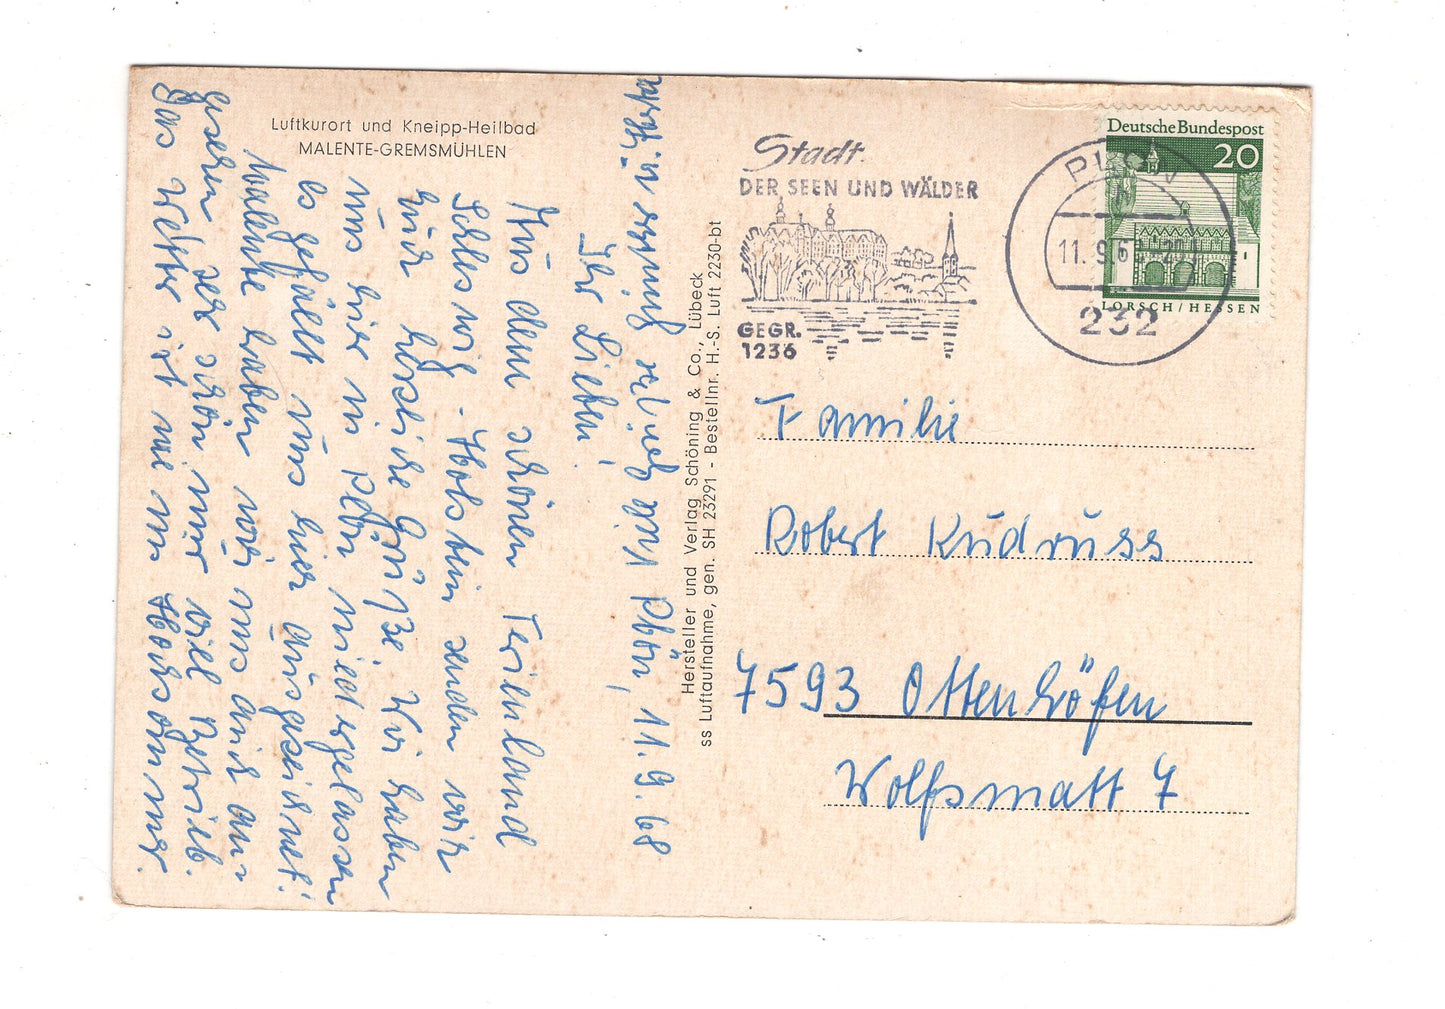 Luftkurort und Kneipp-Heilbad
MALENTE-GREMSMÜHLEN
Stadt
DER SEEN UND WÄLDER
GEGR.
1236
PLÖN
11.9.6
232
Deutsche Bundespost
20
LORSCH/HESSEN
Plön, 11.9.68
Ihr Lieben!
Aus dem schönen Ferienland
Schleswig-Holstein senden wir
Euch herzliche Grüße. Wir haben
uns hier in Plön niedergelassen
es gefällt uns hier ausgezeichnet!
Malente haben wir uns auch an-
gesehen sehr schön nur viel Betrieb.
Das Wetter ist wie im Hochsommer.
Hersteller und Verlag Schöning & Co., Lübeck
ss Luftaufnahme, gen. SH 23291 - Bestellnr. H.-S. Luft 2230-bt
Familie
Robert Kudruss
7593 Ottenhöfen
Wolfsmatt 7